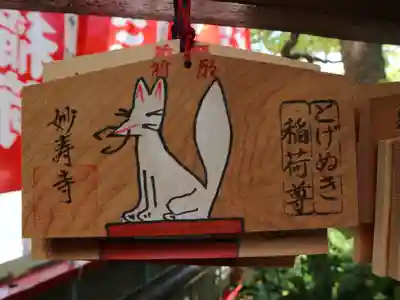 祈願
とげぬき
稲荷尊
妙寿寺
稲荷